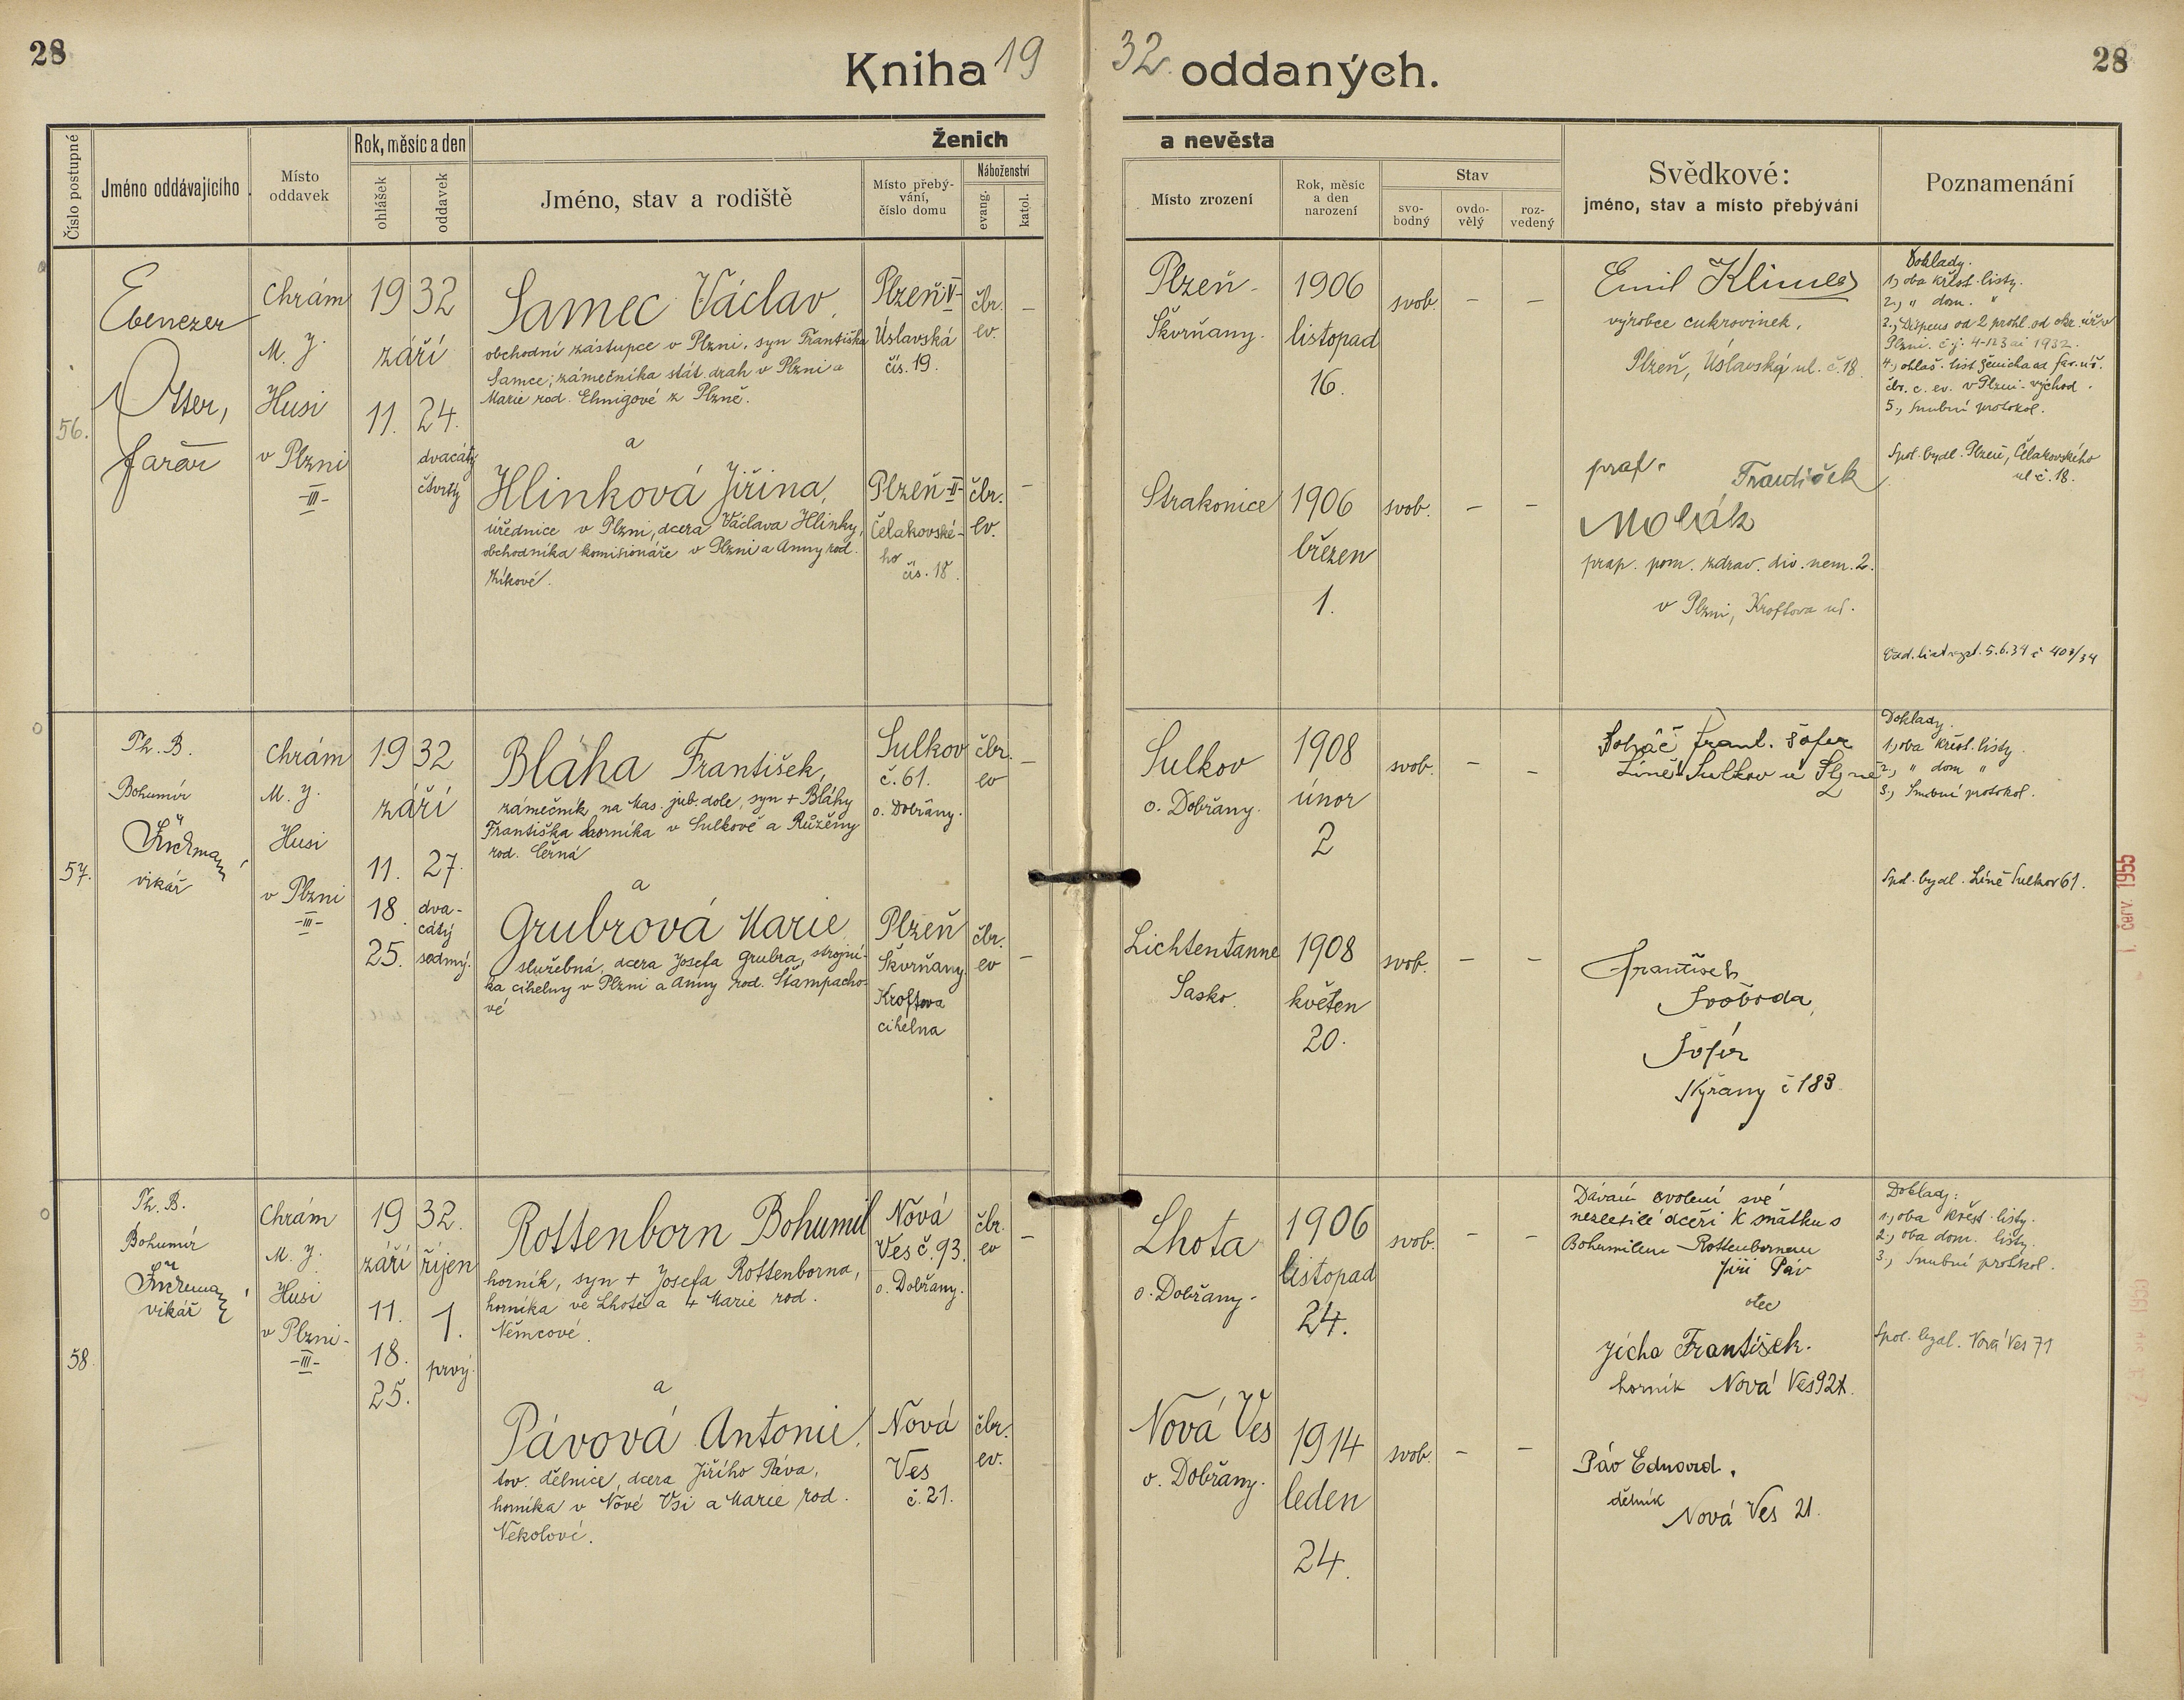 28
Kniha 19 32. oddaných.
28
Číslo postupné
Jméno oddávajícího
Místo oddavek
Rok, měsíc a den
ohlášek
oddavek
Ženich
a nevěsta
Jméno, stav a rodiště
Místo přebý-
vání,
číslo domu
Náboženství
evang.
katol.
Místo zrození
Rok, měsíc
a den
narození
Stav
svo-
bodný
ovdo-
vělý
roz-
vedený
Svědkové:
jméno, stav a místo přebývání
Poznamenání
56.
Ebenezer
Otter,
farář
Chrám
M. J.
Husi
v Plzni
-III-
1932
září
11. 24.
dvacátý
čtvrtý
Samec Václav,
obchodní zástupce v Plzni, syn Františka
Samce, zámečníka stát. drah v Plzni a
Marie rod. Ehnigové z Plzně.
a
Hlinková Jiřina,
úřednice v Plzni, dcera Václava Hlinky,
obchodníka komisionáře v Plzni a Anny rod.
Zíkové.
Plzeň V-
Úslavská
čís. 19.
Plzeň-II-
Čelakovské-
ho
čís. 18.
čbr.
ev.
–
čbr.
ev.
–
Plzeň-
Škvrňany.
1906
listopad
16.
svob.
–
–
Strakonice
1906
březen
1.
svob.
–
–
Emil Klimeš
výrobce cukrovinek,
Plzeň, Úslavská ul. č. 18.
František
prap. pom. zdrav. div. nem. 2.
v Plzni, Kroftova ul.
Doklady.
1, oba křest. listy.
2., " dom. "
Plzni.
1932.
čbr. c. ev. v Plzni-východ.
5., Snubní protokol.
Spol. bydl. Plzeň, Čelakovského
ul č. 18.
5.6.34 č 408/34
57.
Th. B.
Bohumír
vikář
Chrám
M. J.
Husi
v Plzni
-III-
1932
září
11. 27.
18. dva-
cátý
25. sedmý.
Bláha František,
zámečník na Mas. jub. dole, syn + Bláhy
Františka horníka v Sulkově a Růženy
rod. Černá
a
Grubrová Marie
služebná, dcera Josefa Grubra, strojní-
ka cihelny v Plzni a Anny rod. Štampacho-
vé
Sulkov
č. 61.
o. Dobřany.
Plzeň
Škvrňany
Kroftova
cihelna
čbr.
ev
–
čbr.
ev
–
Sulkov
o. Dobřany.
1908
únor
2
svob.
–
–
Lichtentanne
Sasko.
1908
květen
20.
svob.
–
–
Frant. šofer
Líně Sulkov u Plzně
František
Svoboda,
šofér
Nýřany č 183
Doklady.
1, oba křest. listy.
2, " dom "
3., Snubní protokol.
Spol. bydl. Líně Sulkov 61.
1. červ. 1955
58.
Th. B.
Bohumír
vikář
Chrám
M. J.
Husi
v Plzni-
-III-
1932.
září říjen
11. 1.
18. prvý.
25.
Rottenborn Bohumil
horník, syn + Josefa Rottenborna,
horníka ve Lhotě a + Marie rod.
Němcové.
a
Pávová Antonie,
tov. dělnice, dcera Jiřího Páva,
horníka v Nové Vsi a Marie rod.
Nekolové.
Nová
Ves č. 93.
o. Dobřany.
Nová
Ves
č. 21.
čbr.
ev
–
čbr.
ev.
Lhota
o. Dobřany-
1906
listopad
24.
svob.
–
–
Nová Ves
o. Dobřany.
1914
leden
24.
svob.
–
–
Dávám svolení své
nezletilé dceři k sňatku s
Bohumilem Rottenbornem
Jiří Páv
otec
Jícha František.
horník Nová Ves
Páv Eduard,
dělník
Nová Ves 21.
Doklady:
1., oba křest. listy.
2., oba dom. listy.
3., Snubní protokol.
Spol. bydl. Nová Ves 71